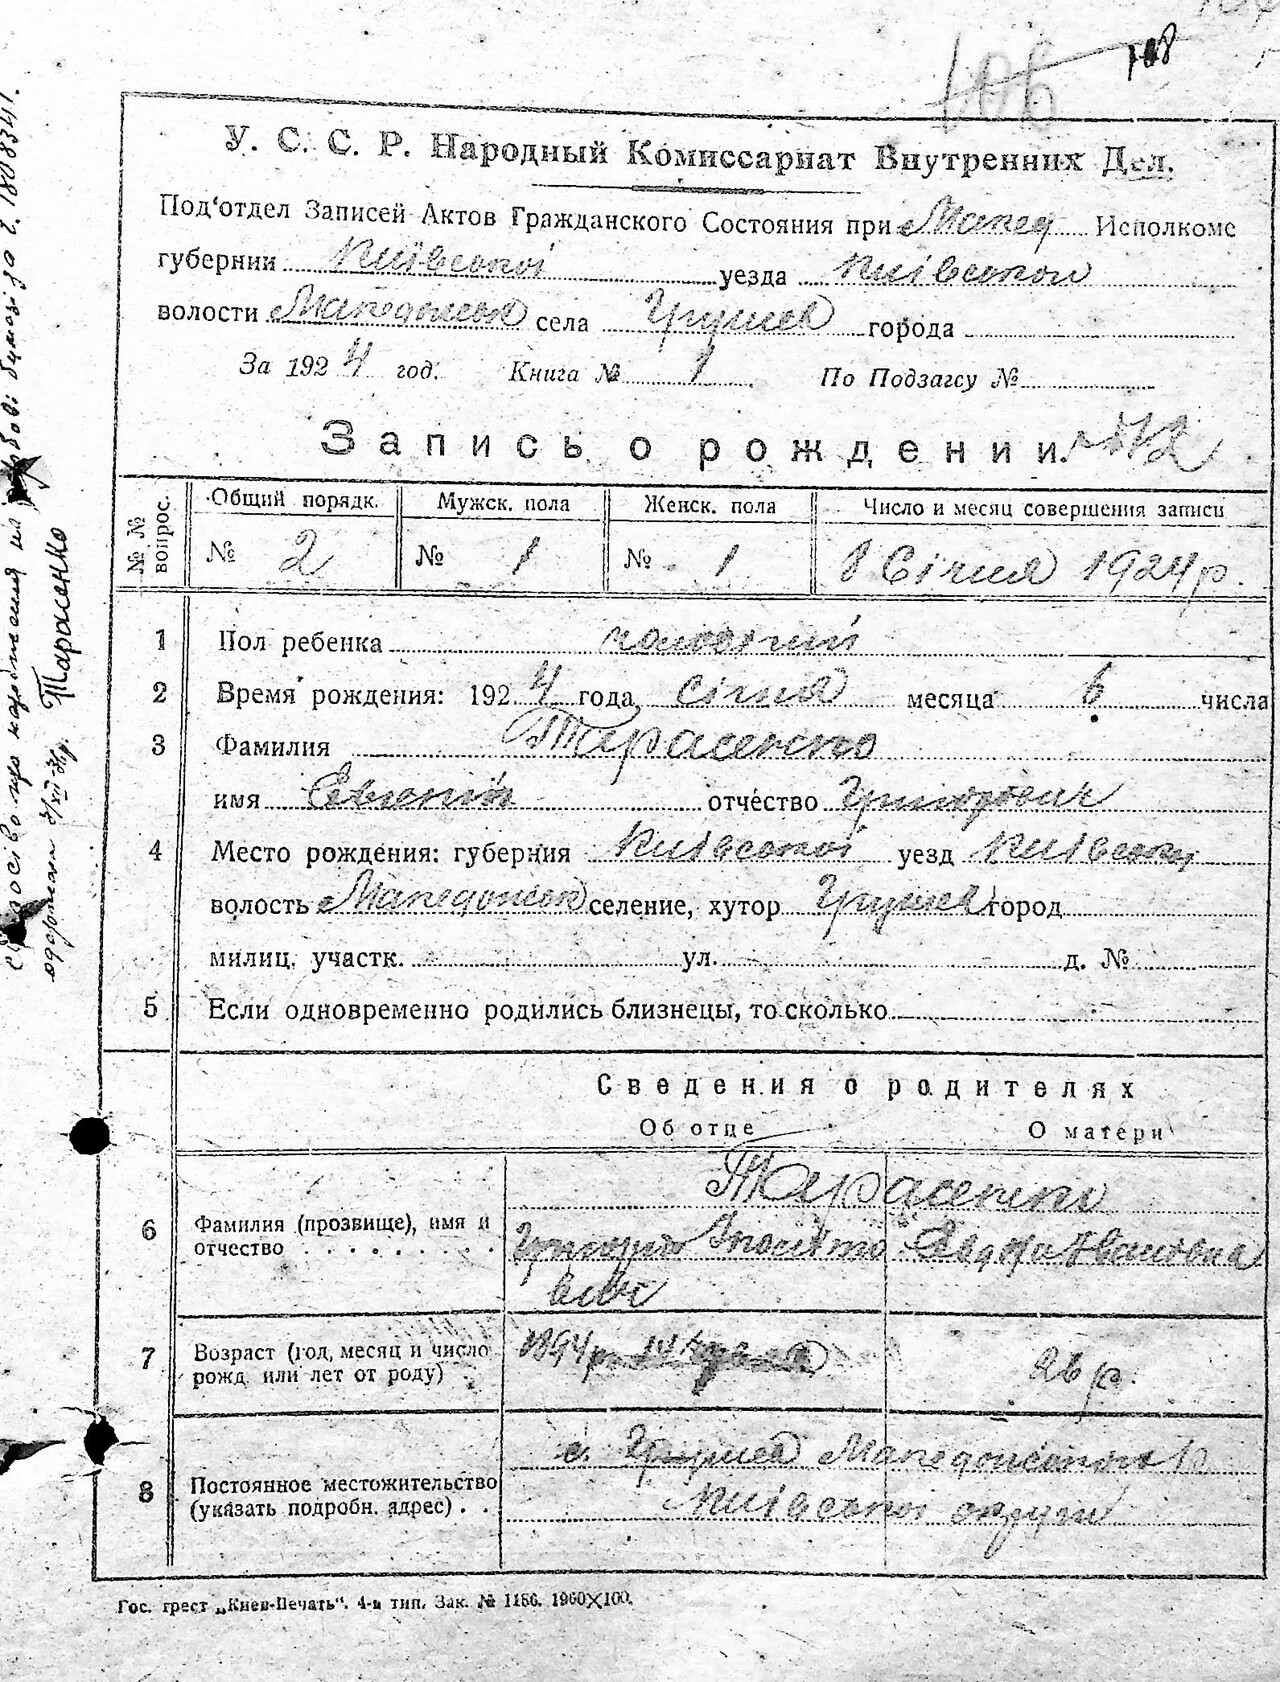 106 108
У. С. С. Р. Народный Комиссариат Внутренних Дел.
Под'отдел Записей Актов Гражданского Состояния при Макед Исполкоме
губернии Київської уезда Київськой
волости Македонськ села Грушев города
За 1924 год. Книга № 1 По Подзагсу №
Запись о рождении.
№№ вопрос. Общий порядк. Мужск. пола Женск. пола Число и месяц совершения записи
№ 2 № 1 № 1 8 Січня 1924 р.
1 Пол ребенка чоловічий
2 Время рождения: 1924 года, січня месяца 6 числа
3 Фамилия Тарасенко
имя Євгеній отчество Григорович
4 Место рождения: губерния Київської уезд Київськ
волость Македонськ селение, хутор Грушев город
милиц. участк. ул. д. №
5 Если одновременно родились близнецы, то сколько
Сведения о родителях
Об отце О матери
Тарасенко
6 Фамилия (прозвище), имя и отчество Григорій Євдокія Івановна
7 Возраст (год, месяц и число рожд. или лет от роду) 1894 р. 26 р.
8 Постоянное местожительство (указать подробн. адрес) с. Грушев Македонського р
Київської округи
Гос. трест „Киев-Печать“. 4-я тип. Зак. № 1186. 1960×100.
Тарасенко